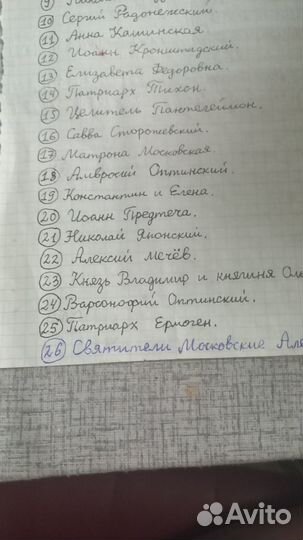 10 Сергий Радонежский.
11 Анна Кашинская
12 Иоанн Кронштадский.
13 Елизавета Фёдоровна.
14 Патриарх Тихон.
15 Целитель Пантелеймон.
16 Савва Сторожевский.
17 Матрона Московская.
18 Амвросий Оптинский.
19 Константин и Елена.
20 Иоанн Предтеча.
21 Николай Японский.
22 Алексий Мечёв.
23 Князь Владимир и княгиня Ол
24 Варсонофий Оптинский.
25 Патриарх Ермоген.
26 Святители Московские Але
Avito